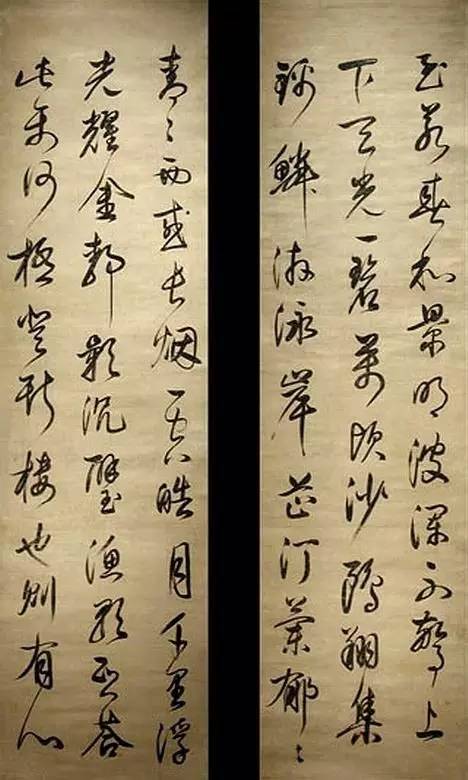 至若春和景明波瀾不驚上
下天光一碧萬頃沙鷗翔集
錦鱗游泳岸芷汀蘭郁〻
青〻而或長烟一空皓月千里浮
光耀金靜影沉璧漁歌互答
此樂何極登斯樓也則有心